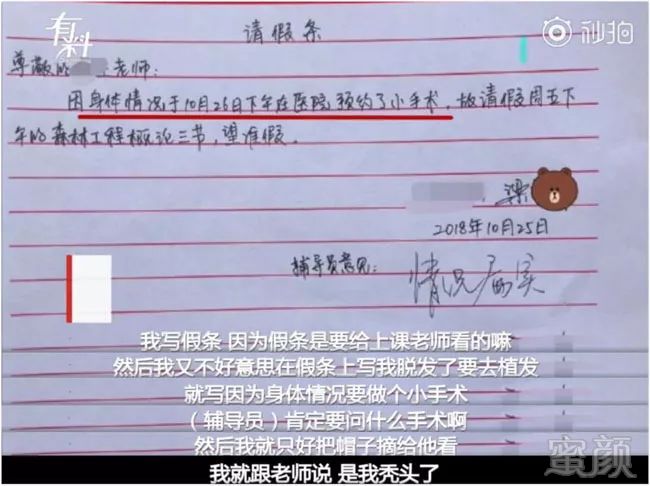 有料
秒拍
请假条
尊敬的 老师:
因身体情况于10月26日下午在医院预约了小手术,故请假周五下
午的森林工程概论三节,望准假。
梁
2018年10月25日
辅导员意见:
情况属实
我写假条 因为假条是要给上课老师看的嘛
然后我又不好意思在假条上写我脱发了要去植发
就写因为身体情况要做个小手术
(辅导员)肯定要问什么手术啊
然后我就只好把帽子摘给他看
我就跟老师说 是我秃头了
蜜颜